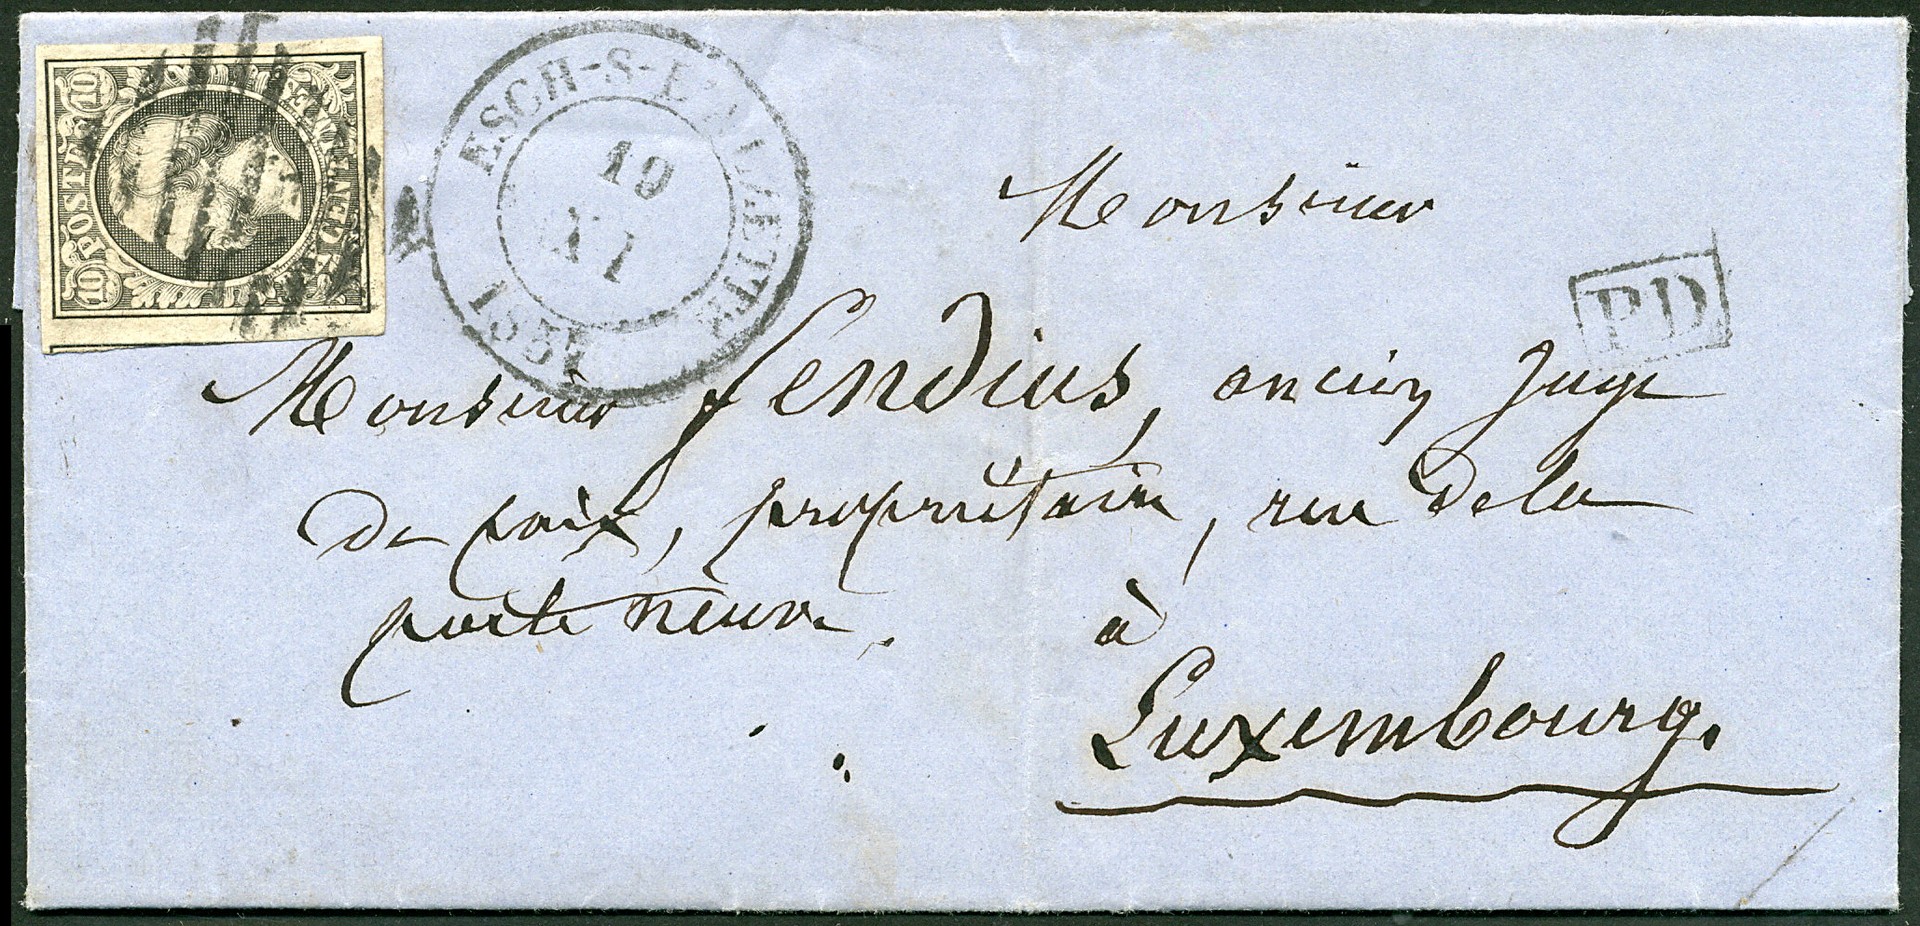 10 POSTES 10
DIX CENTIMES
ESCH-S-L'ALZETTE
19
1
1857
Monsieur
PD
Monsieur fendius, ancien Juge
de paix, propriétaire, rue de la
porte neuve.
à
Luxembourg.